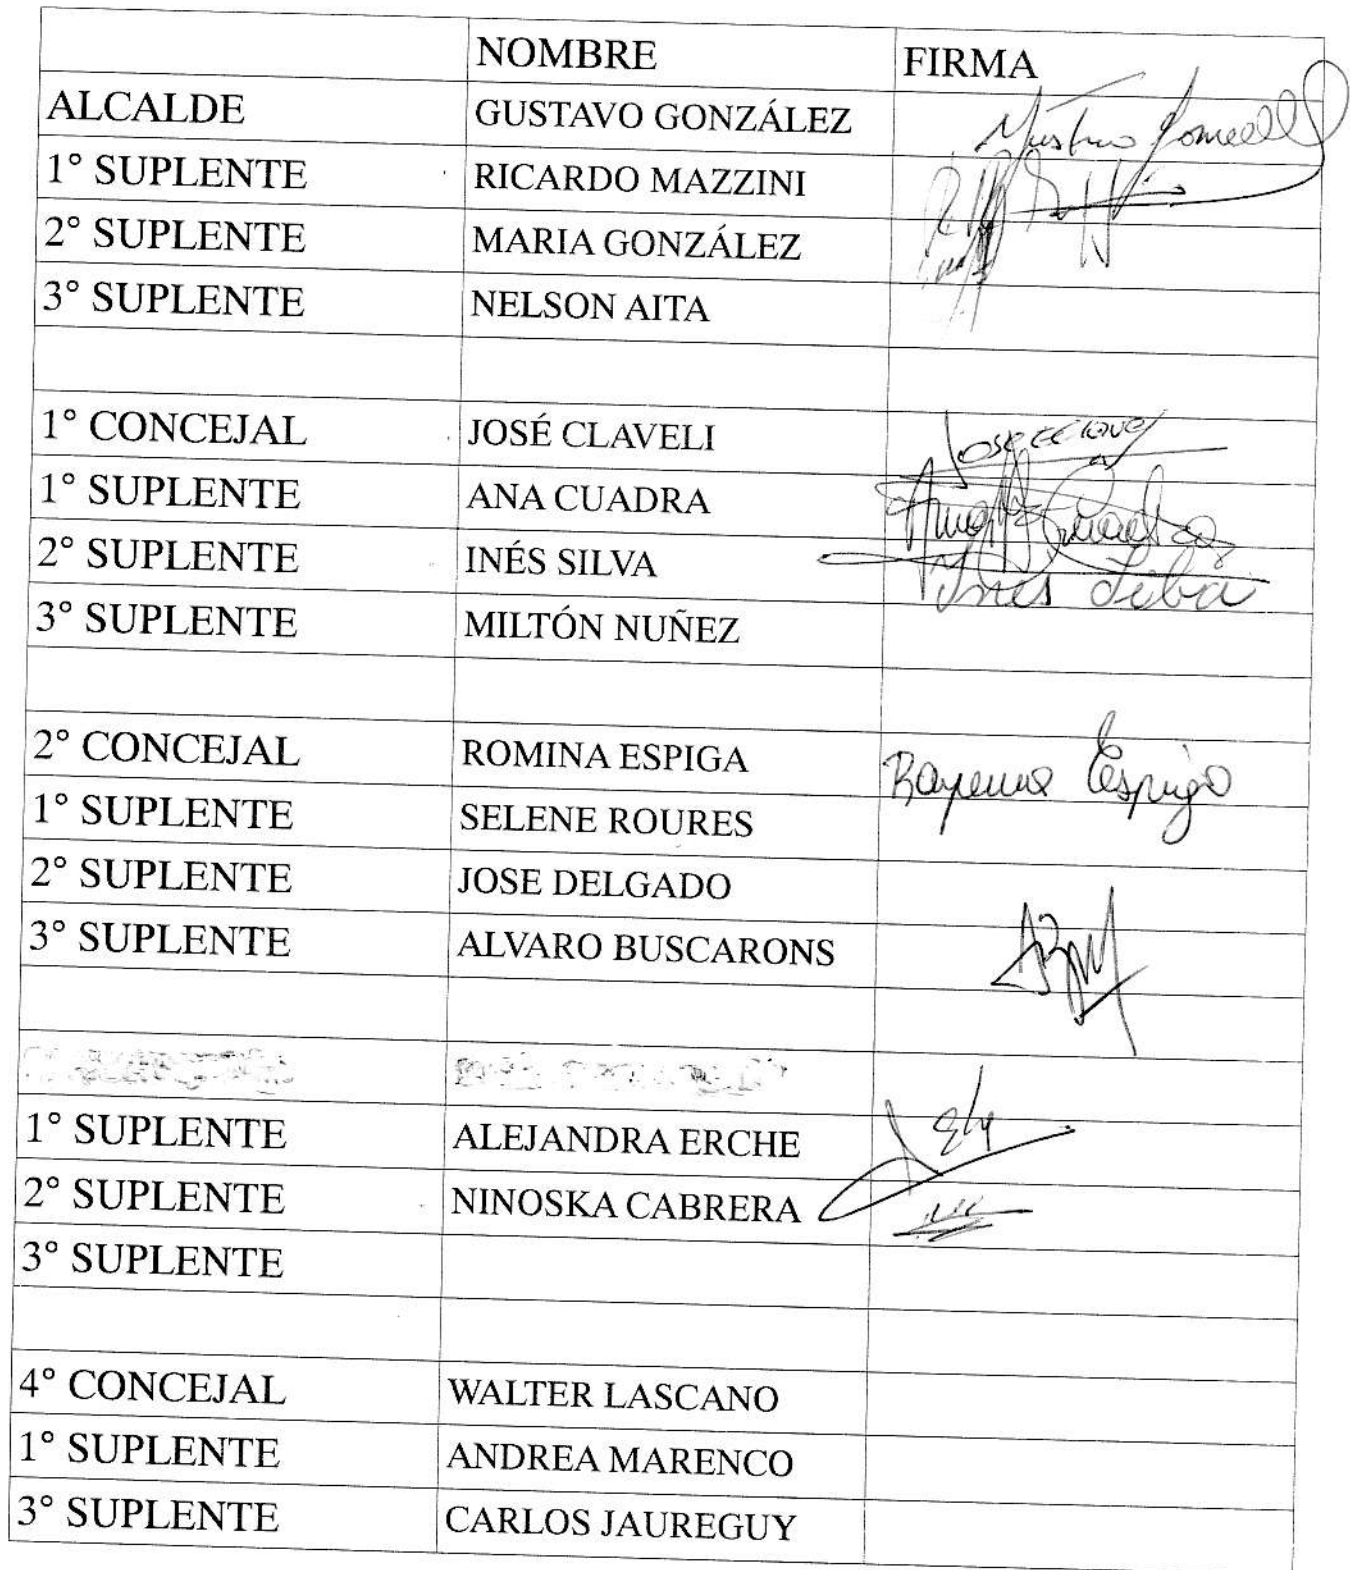 NOMBRE FIRMA
ALCALDE GUSTAVO GONZÁLEZ
1° SUPLENTE RICARDO MAZZINI
2° SUPLENTE MARIA GONZÁLEZ
3° SUPLENTE NELSON AITA
1° CONCEJAL JOSÉ CLAVELI
1° SUPLENTE ANA CUADRA
2° SUPLENTE INÉS SILVA Inés Silva
3° SUPLENTE MILTÓN NUÑEZ
2° CONCEJAL ROMINA ESPIGA Espiga
1° SUPLENTE SELENE ROURES
2° SUPLENTE JOSE DELGADO
3° SUPLENTE ALVARO BUSCARONS
1° SUPLENTE ALEJANDRA ERCHE
2° SUPLENTE NINOSKA CABRERA
3° SUPLENTE
4° CONCEJAL WALTER LASCANO
1° SUPLENTE ANDREA MARENCO
3° SUPLENTE CARLOS JAUREGUY